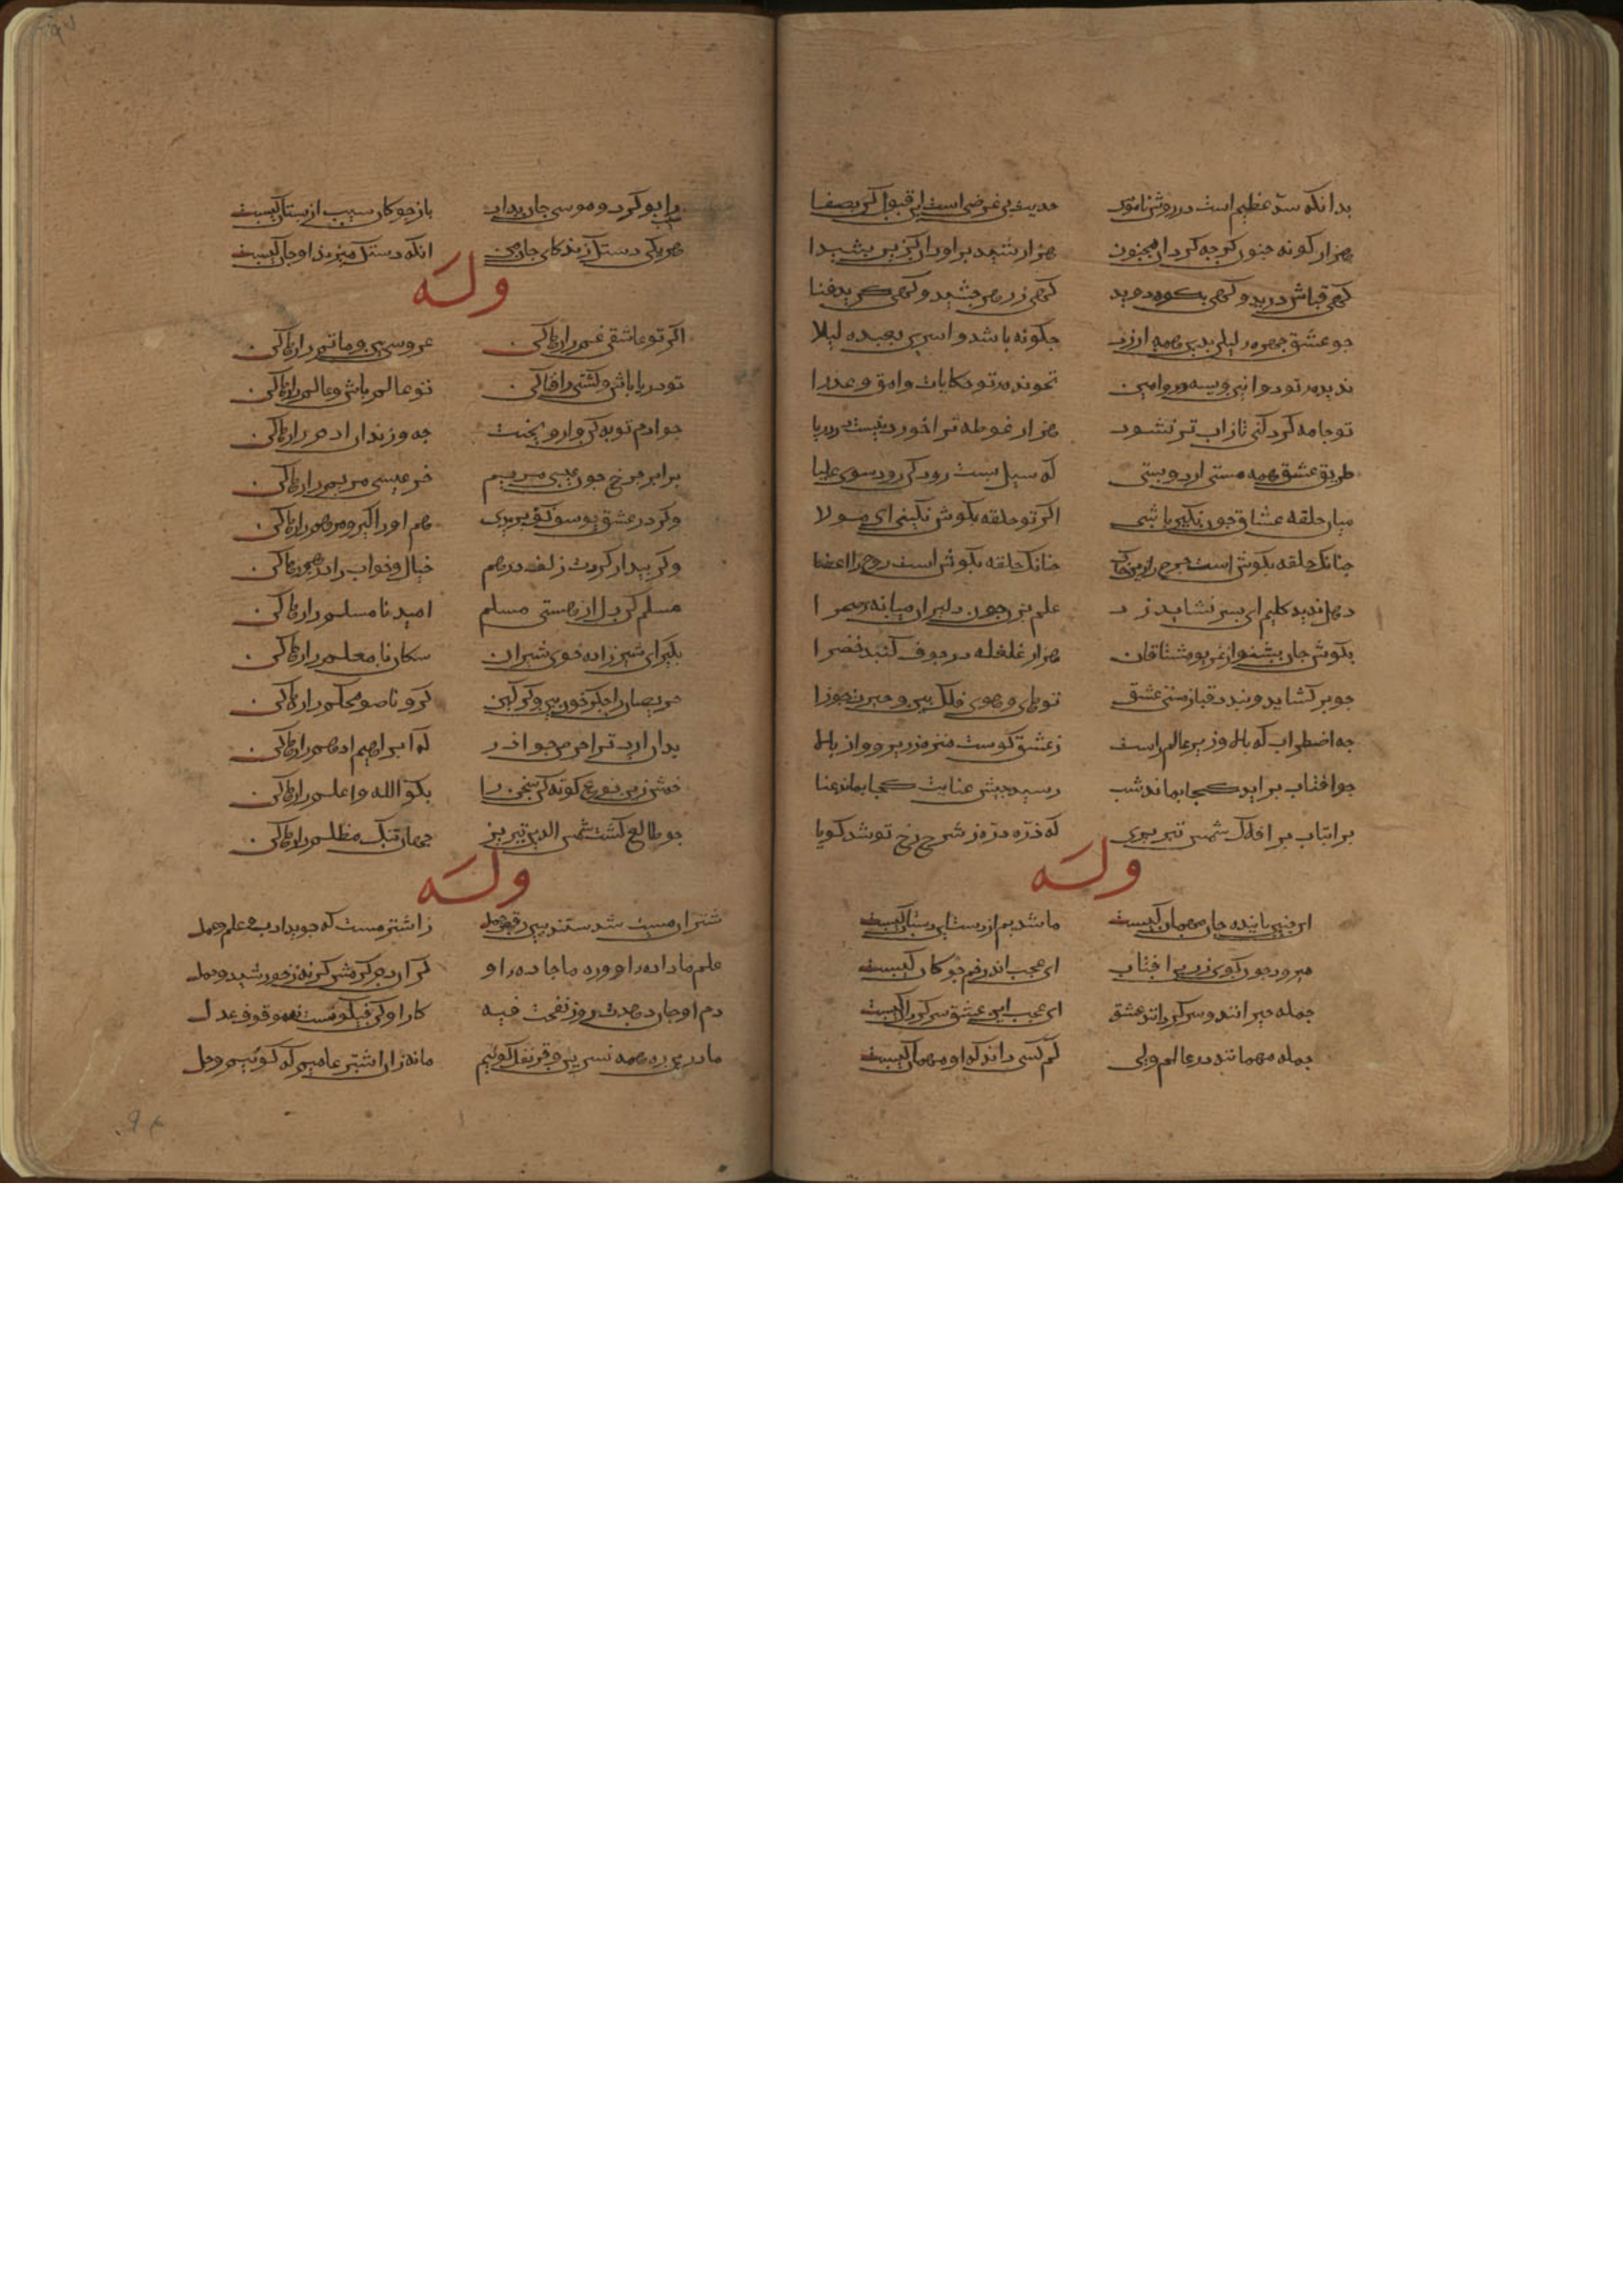 بدانکه سد عظیم است در روش ناموس حدیث بی غرض است این قبول کن بصفا
هزار کونه جنون کرجه کرد ان مجنون هزار شید براورد ان کزین شیدا
کهی قباش درید و کهی بکوه دوید کهی ز زهر جشید و کهی کزید فنا
جو عشق جهره لیلی بدین همه ارزید جکونه باشد واسری بعبده لیلا
ندیده تو دواین ویسه و رامین نخونده تو حکایات وامق و عذرا
تو جامه کرد کنی تا ز اب تر نشود هزار غوطه ترا خوردنیست در دریا
طریق عشق همه مستی ارد و بستی که سیل بست رود کی رود سوی علیا
میان حلقه عشاق جون نکین باشی اکر تو حلقه بکوش نکینی ای مولا
جنانک حلقه بکوش است جرخ را این خاک جنانک حلقه بکوش است روح را اعضا
دهل بدید کلیم ای بسر نشاید زد علم بزن جون دلیران میانه صحرا
بکوش جان بشنو از غریو مشتاقان هزار غلغله در جوف کنبد خضرا
جو بر کشاید و بندد قبا ز مستی عشق تو های و هوی فلک بین و حیرت جوزا
جه اضطراب که بالا و زیر عالم راست ز عشق کوست منزه ز زیر و از بالا
جو افتاب براید کجا بماند شب رسید جیش عنایت کجا بماند عنا
برا بتاب بر افلاک شمس تبریزی که ذره ذره ز شرح رخ تو شد کویا
وله
این جنین بابنده جان مهمان کیست ما شدیم از دست این دستان کیست
میرود جون کوی زرین افتاب ای عجب اندر خم جوکان کیست
جمله حیرانند و سرکردان عشق ای عجب این عشق سرکردان کیست
جمله مهمانند در عالم ولی کم کسی داند که او مهمان کیست
را بو کرد و موسی جان بداد باز جو کان سیب از بستان کیست
هریکی دستک زند کای جان من انکه دستک میزند او جان کیست
وله
اکر تو عاشقی غم را رها کن عروسی بین و ماتم را رها کن
تو دریا باش و کشتی را فنا کن تو عالم باش و عالم را رها کن
جو ادم توبه کن وارو بجنت جه و زندان ادم را رها کن
برا بر جرخ جون عیسی مریم خر عیسی مریم را رها کن
وکر در عشق یوسف کف بریدی هم او را کیر و مرهم را رها کن
وکر بیدار کردت زلف درهم خیال و خواب درهم را رها کن
مسلم کن دل از هستی مسلم امید نامسلم را رها کن
بکیر ای شیرزاده خوی شیران سکان نا معلم را رها کن
حریصان را جکر خون بین و کرکین کر و ناسور محکم را رها کن
بدان ارد ترا حرص جو اذر که ابراهیم ادهم را رها کن
خمش زین نوع کوته کن سخن را بکو الله و اعلم را رها کن
جو طالع کشت شمس الدین تبریز جهان تنک مظلم را رها کن
وله
شتران مست شدستند ببین رقص جمل ز اشتر مست که جوید ادب و علم و عمل
علم ما داده او و ره ما جاده او کرمی ما دم کرمش نه ز خورشید و حمل
دم او جان دهدت رو ز نفخت فیه کار او کن فیکونست نه موقوف علل
ما درین ره همه نسرین و قرنفل کوبیم ما نه زان اشتر عامیم که کوبیم وحل